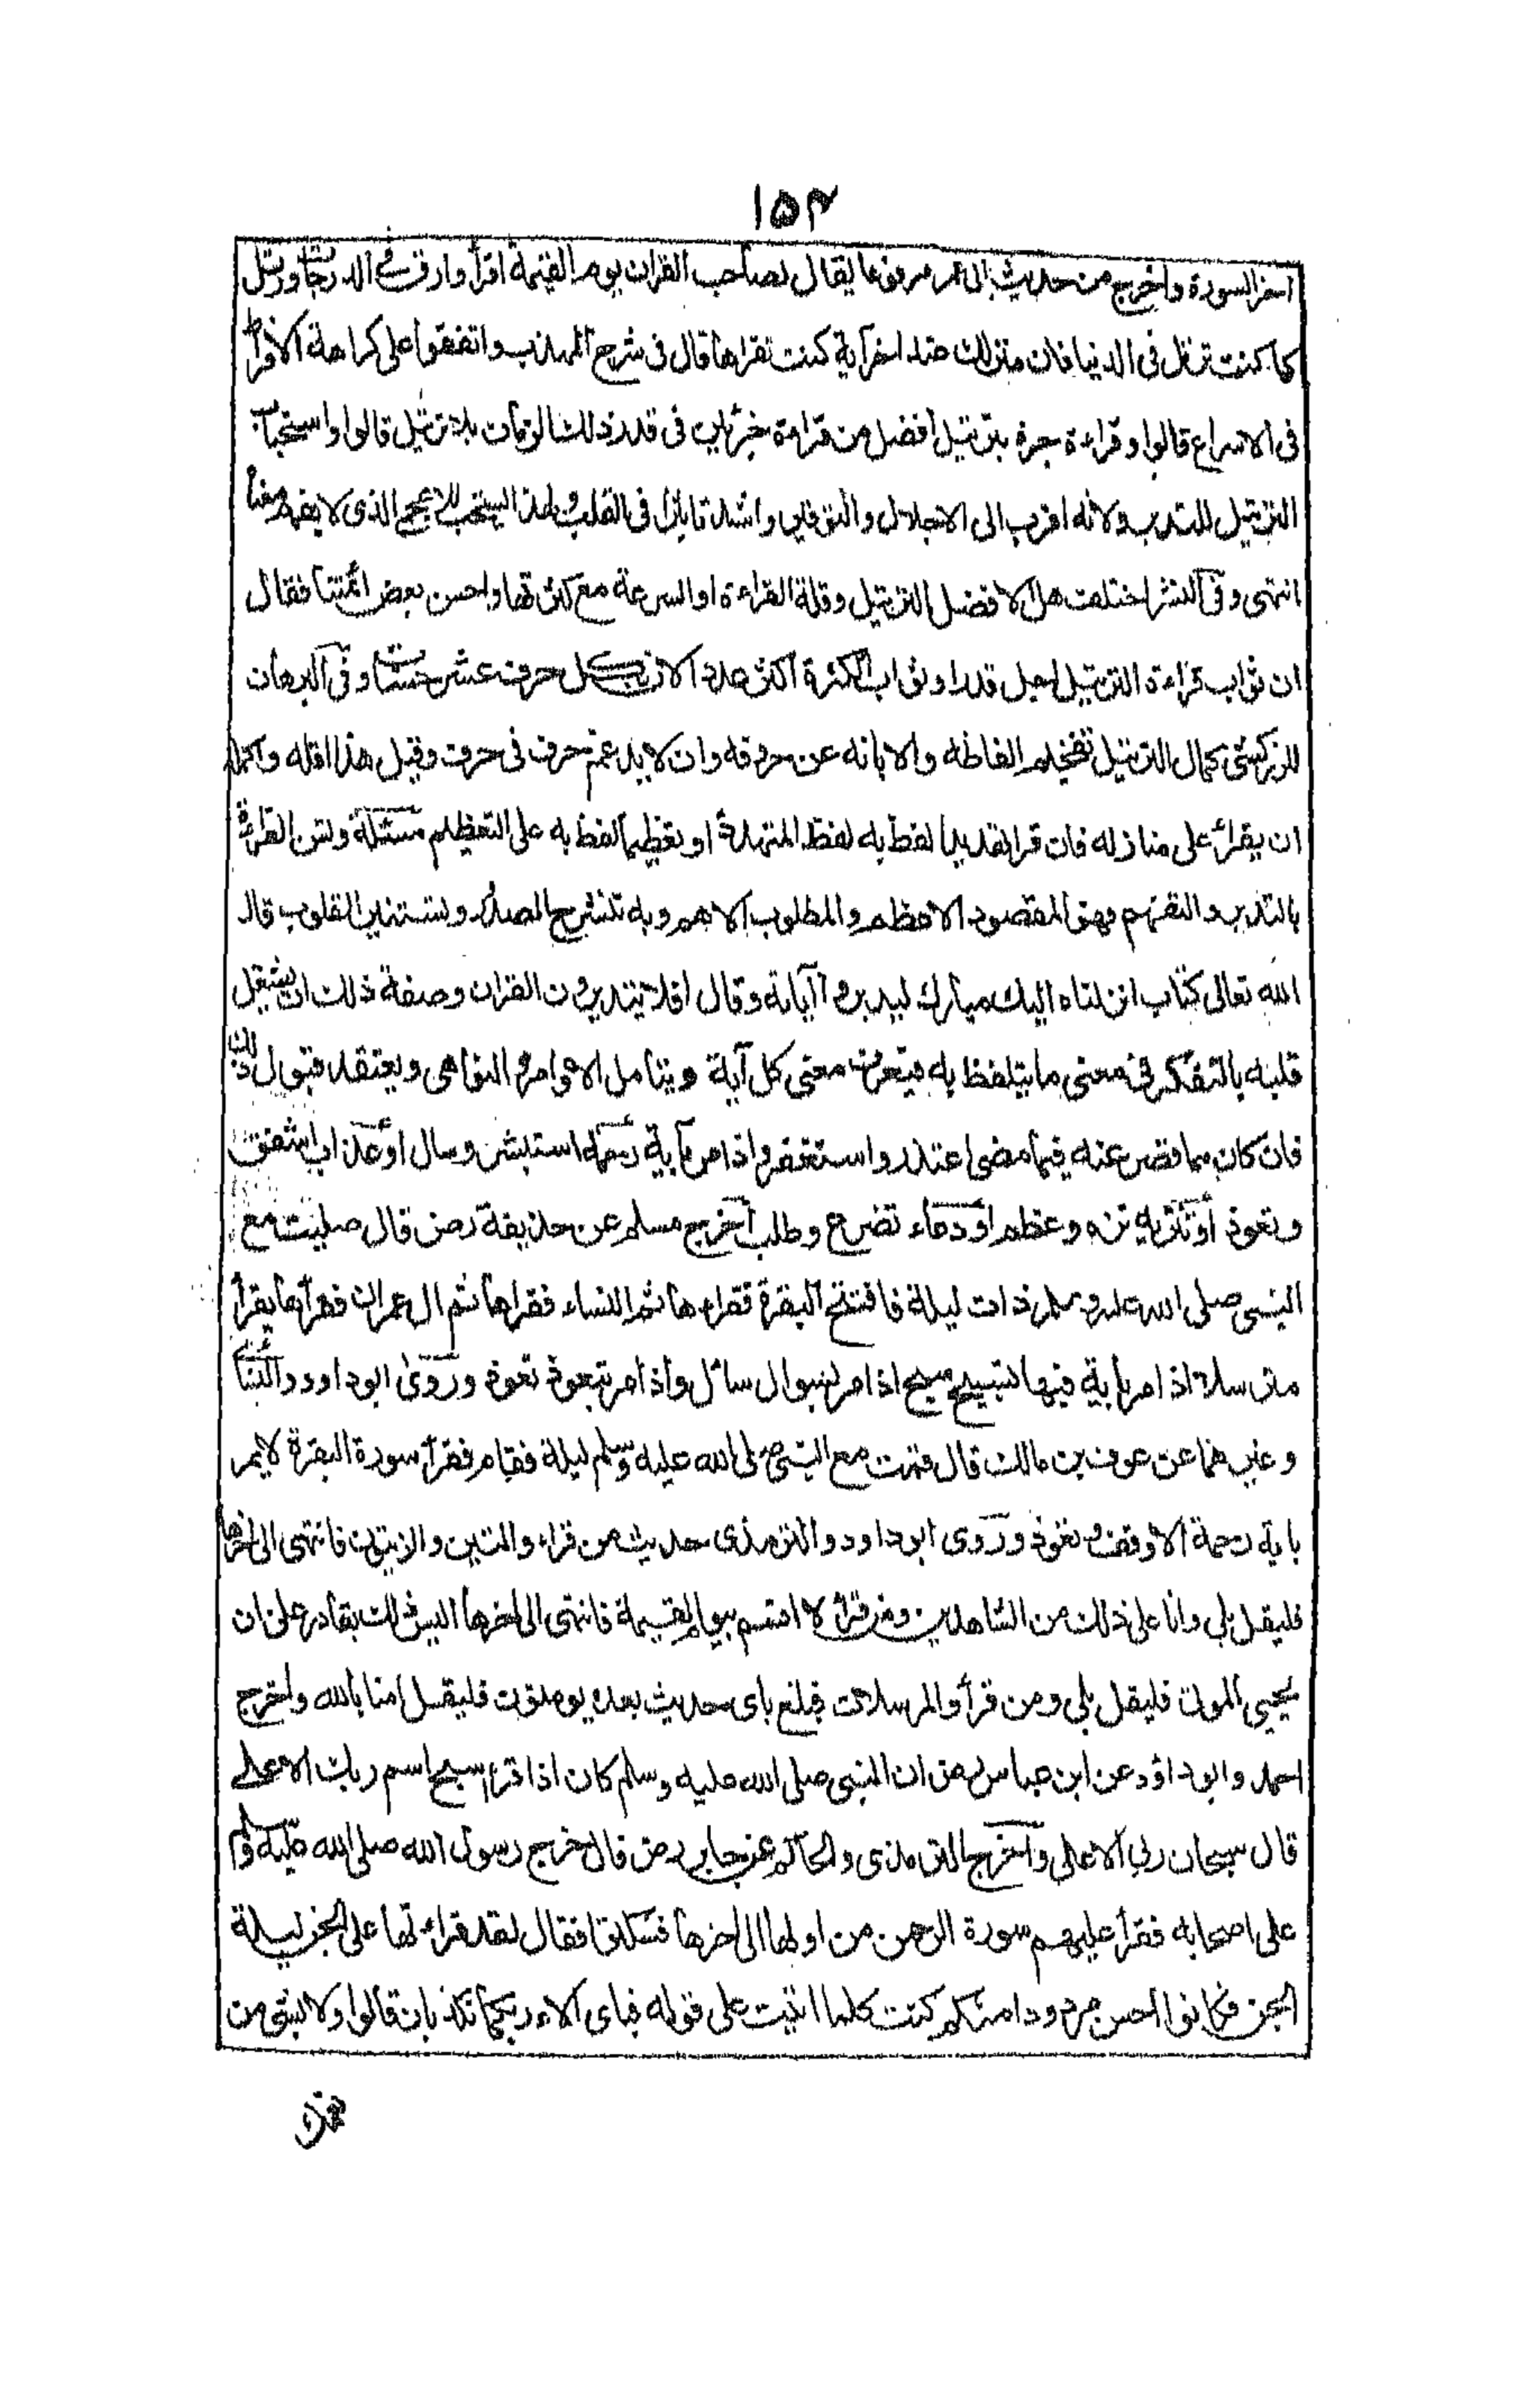 ١٥٢
آخر السورة واخرج من حديث ابن عمر مرفوعا يقال لصاحب القران يوم القيمة اقرأ وارق في الدرجات ورتل
كما كنت ترتل فى الدنيا فان منزلك عند اخر آية كنت تقراها قال فى شرح المهذب واتفقوا على كراهة الافراط
فى الاسراع قالوا وقراءة جزء بترتيل افضل من قراءة جزئين فى قدر ذلك الزمان بلا ترتيل قالوا واستحباب
الترتيل للتدبر ولانه اقرب الى الاجلال والتوقير واشد تاثيرا فى القلب ولهذا يستحب للاعجمى الذى لا يفهم معناه
انتهى وفى النشر اختلف هل الافضل الترتيل وقلة القراءة او السرعة مع كثرتها واحسن بعض ائمتنا فقال
ان ثواب قراءة الترتيل اجل قدرا وثواب الكثرة اكثر عددا لان بكل حرف عشر حسنات وفى البرهان
للزركشى كمال الترتيل تفخيم الفاظه والابانه عن حروفه وان لا يدغم حرف فى حرف وقيل هذا اقله واكمله
ان يقرأ على منازله فان قرا تهديدا لفظ به لفظ المتهدد او تعظيما لفظ به على التعظيم مسئلة وتسن القراءة
بالتدبر والتفهم فهو المقصود الاعظم والمطلوب الاهم وبه تنشرح الصدور وتستنير القلوب قال
الله تعالى كتاب انزلناه اليك مبارك ليدبروا آياته وقال افلا يتدبرون القران وصفة ذلك ان يشتغل
قلبه بالتفكر فى معنى ما يتلفظ به فيعرف معنى كل آية ويتامل الاوامر والنواهى ويعتقد قبول ذلك
فان كان مما قصر عنه فيما مضى اعتذر واستغفر واذا مر بآية رحمة استبشر وسال او عذاب اشفق
وتعوذ او تنزيه نزه وعظم او دعاء تضرع وطلب اخرج مسلم عن حذيفة رض قال صليت مع
النبى صلى الله عليه وسلم ذات ليلة فافتتح البقرة فقراءها ثم النساء فقراها ثم ال عمران فقرأها يقرأ
مترسلا اذا مر بآية فيها تسبيح سبح اذا مر بسوال سأل واذا مر بتعوذ تعوذ وروى ابو داود والنسائى
وغيرهما عن عوف بن مالك قال قمت مع النبى صلى الله عليه وسلم ليلة فقام فقرأ سورة البقرة لا يمر
باية رحمة الا وقف وتعوذ وروى ابو داود والترمذى حديث من قراء والتين والزيتون فانتهى الى اخرها
فليقل بلى وانا على ذلك من الشاهدين ومن قرأ لا اقسم بيوم القيمة فانتهى الى اخرها اليس ذلك بقادر على ان
يحيى الموتى فليقل بلى ومن قرأ والمرسلات فبلغ باى حديث بعده يومنون فليقل امنا بالله واخرج
احمد وابو داؤد عن ابن عباس رض ان النبى صلى الله عليه وسلم كان اذا قرأ سبح اسم ربك الاعلى
قال سبحان ربى الاعلى واخرج الترمذى والحاكم عن جابر رض قال خرج رسول الله صلى الله عليه وسلم
على اصحابه فقرأ عليهم سورة الرحمن من اولها الى اخرها فسكتوا فقال لقد قراءتها على الجن ليلة
الجن فكانوا احسن مردودا منكم كنت كلما اتيت على قوله فباى الاء ربكما تكذبان قالوا ولا بشئ من